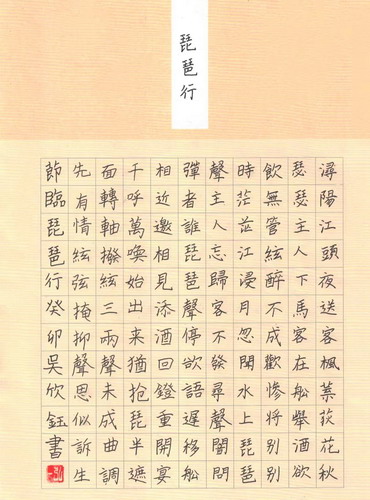 琵琶行
潯陽江頭夜送客楓葉荻花秋
瑟瑟主人下馬客在船舉酒欲
飲無管絃醉不成歡慘將別別
時茫茫江浸月忽聞水上琵琶
聲主人忘歸客不發尋聲闇問
彈者誰琵琶聲停欲語遲移船
相近邀相見添酒回鐙重開宴
千呼萬喚始出来猶抱琵半遮
面轉軸撥絃三兩聲未成曲調
先有情絃弦掩抑聲思似訴生
節臨琵琶行癸卯吳欣鈺書